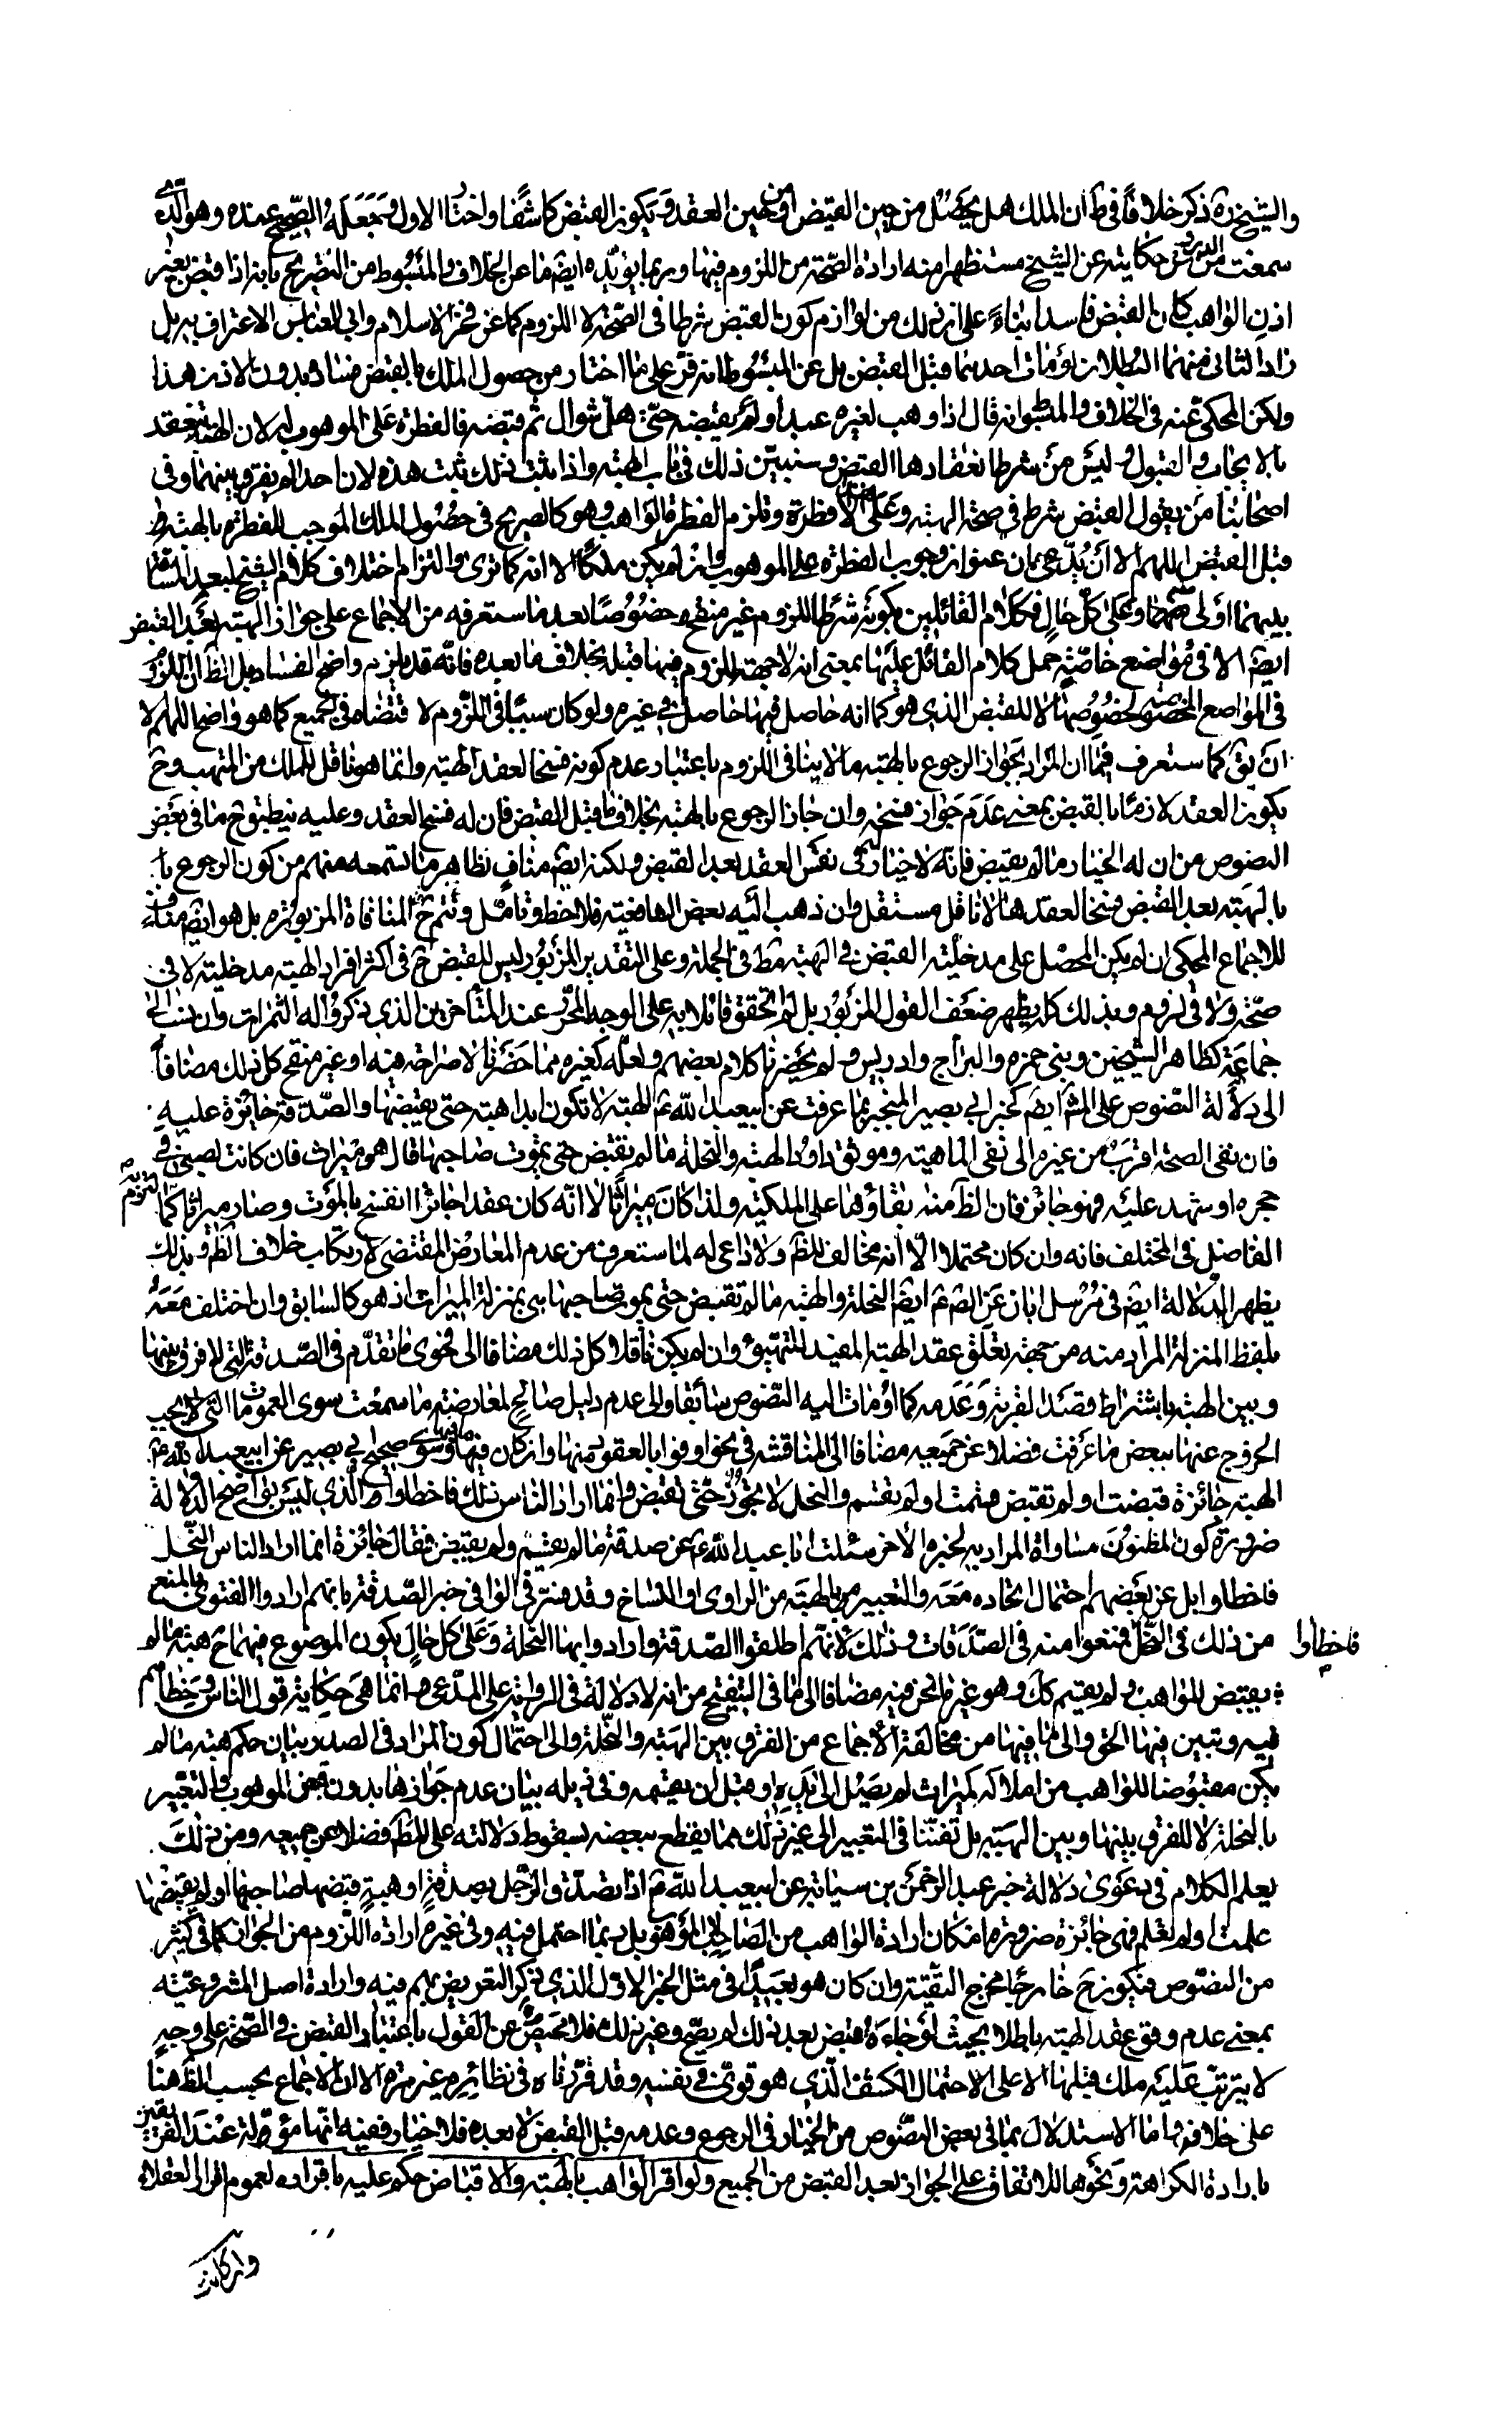 والشيخ ره ذكر خلافا في ط ان الملك هل يحصل من حين القبض او من حين العقد ويكون القبض كاشفا واختار الاول وجعله الصحيح عنده وهو الذي
سمعت من الدروس حكايته عن الشيخ مستظهرا منه ارادة الصحة من اللزوم فيها وربما يؤيده ايضا ما عن الخلاف والمبسوط من التصريح بانه اذا قبض بغير
اذن الواهب كان القبض فاسدا بناء على ان ذلك من لوازم كون القبض شرطا في الصحة لا اللزوم كما عن فخر الاسلام وابي العباس الاعتراف به بل
زاد الثاني منهما البطلان لو مات احدهما قبل القبض بل عن المبسوط انه فرع على ما اختار من حصول الملك بالقبض فساده بدون الاذن هذا
ولكن المحكي عنه في الخلاف والمبسوط انه قال اذا وهب لغيره عبدا ولم يقبضه حتى هل شوال ثم قبضه فالفطرة على الموهوب له لان الهبة تنعقد
بالايجاب والقبول وليس من شرط انعقادها القبض وسنبين ذلك في باب الهبة واذا ثبت ذلك ثبت هذه لان احدا لم يفرق بينهما وفي
اصحابنا من يقول القبض شرط في صحة الهبة وعلى هذا لا فطرة وتلزم الفطرة الواهب وهو كالصريح في حصول الملك الموجب للفطرة بالهبة
قبل القبض اللهم الا ان يدعى بان عنوان وجوب الفطرة على الموهوب وان لم يكن ملكا الا انه كما ترى والتزام اختلاف كلام الشيخ لبعد المسافة
بينهما اولى منهما وعلى كل حال فكلام القائلين بكونه شرطا للزوم غير منقح وخصوصا بعد ما ستعرفه من الاجماع على جواز الهبة بعد القبض
ايضا الا في مواضع خاصة حمل كلام القائل عليها بمعنى انه لا جهة للزوم فيها قبله بخلاف ما بعده فانه قد يلزم واضح الفساد بل الظ ان اللزوم
في المواضع المخصوصة لخصوصها لا للقبض الذي هو كما انه حاصل فيها حاصل في غيره ولو كان سببا في اللزوم لاقتضاه في الجميع كما هو واضح اللهم الا
ان يق كما ستعرف فيما ان المراد بجواز الرجوع بالهبة ما لا ينافي اللزوم باعتبار عدم كونه فسخا لعقد الهبة وانما هو ناقل للملك من المتهب وح
يكون العقد لازما بالقبض بمعنى عدم جواز فسخه وان جاز الرجوع بالهبة بخلاف ما قبل القبض فان له فسخ العقد وعليه ينطبق ح ما في بعض
النصوص من ان له الخيار ما لم يقبض فانه لا خيار له في نفس العقد بعد القبض ولكنه ايضا مناف لظاهر ما تسمعه منهم من كون الرجوع با
بالهبة بعد القبض فسخا لعقدها لا ناقل مستقل وان ذهب اليه بعض الشافعية فلاحظ وتامل وتتم ح المنافاة المزبورة بل هو ايضا مناف
للاجماع المحكي ان لم يكن المحصل على مدخلية القبض في الهبة في الجملة وعلى التقدير المزبور ليس للقبض ح في اكثر افراد الهبة مدخلية لا في
صحة ولا في لزوم وبذلك كله يظهر ضعف القول المزبور بل لم اتحقق قائلا به على الوجه المحرر عند المتاخرين الذي ذكروا له الثمرات وان نسب الى
جماعة كظاهر الشيخين وبني حمزة والبراج وادريس ولم يحضرنا كلام بعضهم ولعله كغيره مما حضرنا لا صراحة فيه او غير منقح كل ذلك مضافا
الى دلالة النصوص على المش ايضا كخبر ابي بصير المنجبر بما عرفت عن ابيعبد الله ع الهبة لا تكون ابدا هبة حتى يقبضها والصدقة جائزة عليه
فان نفي الصحة اقرب من غيره الى نفي الماهية وموثق داود الهبة والنحلة ما لم تقبض حتى يموت صاحبها قال هو ميراث فان كانت لصبي في
حجره او شهد عليه فهو جائز فان الظ منه بقاؤها على الملكية ولذا كان ميراثا لا انه كان عقدا جائزا انفسخ بالموت وصار ميراثا كما التزم به
الفاضل في المختلف فانه وان كان محتملا الا انه مخالف للظ ولا داعي له لما ستعرف من عدم المعارض المقتضي لارتكاب خلاف الظ وبذلك
يظهر الدلالة ايضا في مرسل ابان عن الص ع ايضا النحلة والهبة ما لم تقبض حتى يموت صاحبها هي بمنزلة الميراث اذ هو كالسابق وان اختلف معه
بلفظ المنزلة المراد منه من جهة تعلق عقد الهبة المفيد للتهيؤ وان لم يكن ناقلا كل ذلك مضافا الى فحوى ما تقدم في الصدقة التي لا فرق بينها
وبين الهبة باشتراط قصد القربة وعدمه كما اومات اليه النصوص سابقا والى عدم دليل صالح لمعارضته ما سمعت سوى العمومات التي لا يجب
الخروج عنها ببعض ما عرفت فضلا عن جميعه مضافا الى المناقشة في نحو اوفوا بالعقود منها وان كان فيها ما فيها وسوى صحيح ابي بصير عن ابيعبد الله ع
الهبة جائزة قبضت او لم تقبض قسمت او لم تقسم والنحل لا تجوز حتى تقبض وانما اراد الناس ذلك فاخطاوا الذي ليس بواضح الدلالة
ضرورة كون المظنون مساواة المراد به لخبره الاخر سئلت ابا عبد الله ع عن صدقة ما لم يقسم ولم يقبض فقال جائزة انما اراد الناس النحل
فاخطاوا بل عن بعضهم احتمال اتحاده معه والتعبير بالهبة من الراوي او النساخ وقد فسر في الوافي خبر الصدقة بانهم ارادوا الفتوى بالمنع
من ذلك في النحل فمنعوا منه في الصدقات وذلك لانهم اطلقوا الصدقة وارادوا بها النحلة وعلى كل حال يكون الموضوع فيهما ح هبة ما لم
فاخطاوا
يقبض للواهب ولم يقسم كك وهو غير ما نحن فيه مضافا الى ما في التنقيح من انه لا دلالة في الرواية على المدعى انما هي حكاية قول الناس وخطاهم
فيه وتبين فيها الحق والى ما فيها من مخالفة الاجماع من الفرق بين الهبة والنحلة والى احتمال كون المراد في الصدر بيان حكم هبة ما لم
يكن مقبوضا للواهب من املاكه كميراث لم يصل الى يده او قبل ان يقسمه وفي ذيله بيان عدم جوازها بدون قبض الموهوب والتعبير
بالنحلة لا للفرق بينها وبين الهبة بل تفننا في التعبير الى غير ذلك مما يقطع ببعضه بسقوط دلالته على المط فضلا عن جميعه ومن ذلك
يعلم الكلام في دعوى دلالة خبر عبد الرحمن بن سيابة عن ابيعبد الله ع اذا تصدق الرجل بصدقة او هبة قبضها صاحبها او لم يقبضها
علمت او لم تعلم فهي جائزة ضرورة امكان ارادة الواهب من الصاحب لا الموهوب بل ربما احتمل فيه وفي غيره ارادة اللزوم من الجواز كما في كثير
من النصوص فيكون ح خارجا مخرج التقية وان كان هو بعيدا في مثل الخبر الاول الذي ذكر التعريض بهم فيه وارادة اصل المشروعية
بمعنى عدم وقوع عقد الهبة باطلا بحيث لو جاءه قبض بعد ذلك لم يصح وغير ذلك فلا محيص عن القول باعتبار القبض في الصحة على وجه
لا يترتب عليه ملك قبلها الا على الاحتمال الكشف الذي هو قوي في نفسه وقد قررناه في نظائره غير مرة الا ان الاجماع بحسب الظ هنا
على خلافه واما الاستدلال بما في بعض النصوص من الخيار في الرجوع وعدمه قبل القبض لا بعده فلا خيار ففيه انها مؤولة عند الفريقين
بارادة الكراهة ونحوها للاتفاق على الجواز بعد القبض من الجميع ولو اقر الواهب بالهبة والاقباض حكم عليه باقراره لعموم اقرار العقلاء
وان كان